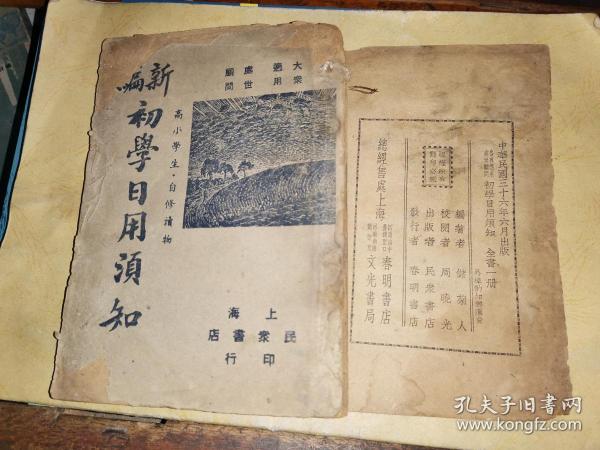 新編
初學日用須知
高小學生·自修讀物
大眾適用
處世顧問
上海
民眾書店
印行
中華民國三十六年六月出版
初學日用須知 全書一冊
編著者 人
校閱者 周曉光
出版者 民眾書店
發行者 春明書店
總經售處上海
春明書店
文光書局
孔夫子旧书网
www.kongfz.com